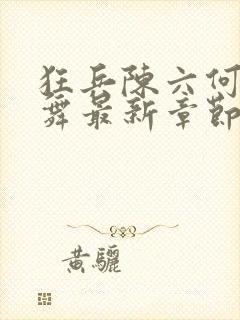 狂兵陈六何
舞最新章節
黄驪